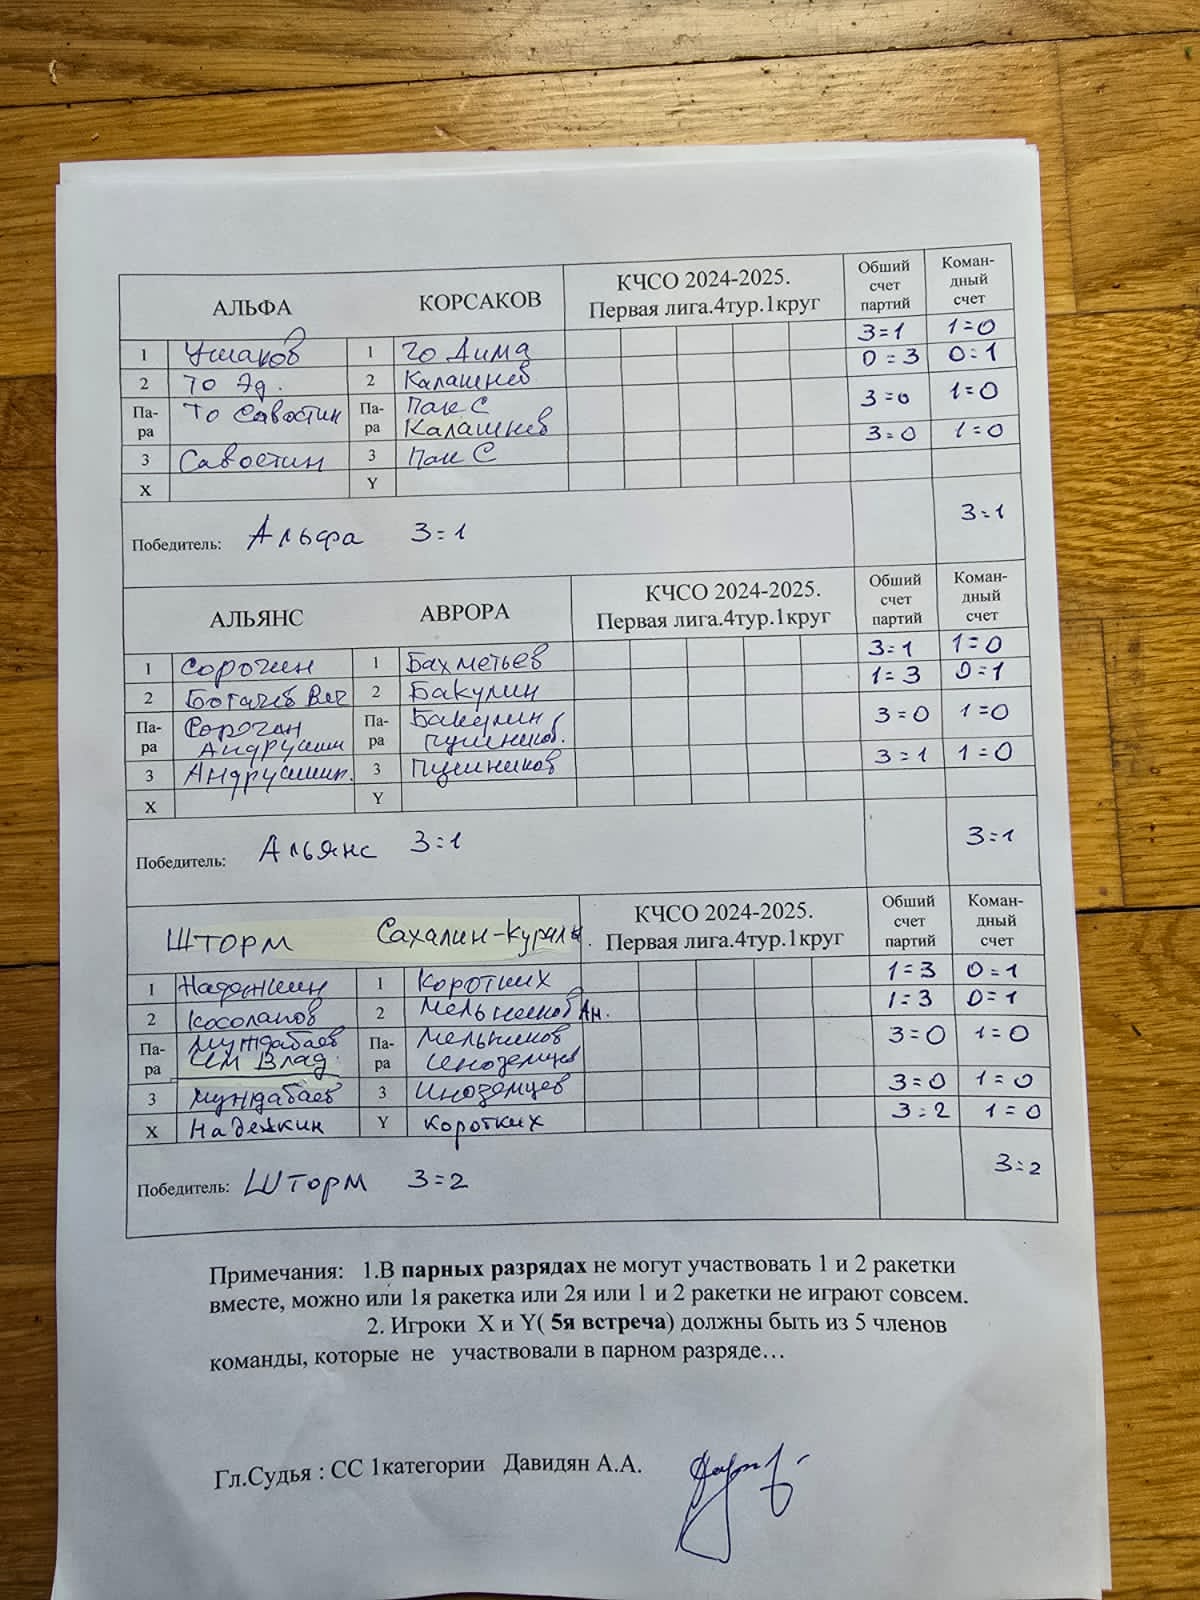 АЛЬФА КОРСАКОВ КЧСО 2024-2025. Первая лига.4тур.1круг Обший счет партий Коман-дный счет
1 Ушаков 1 То Дима 3=1 1=0
2 То Эд. 2 Калашнев 0=3 0:1
Па-ра То Савостин Па-ра Пак С Калашнев 3=0 1=0
3 Савостин 3 Пак С 3=0 1=0
X Y
Победитель: Альфа 3=1 3=1
АЛЬЯНС АВРОРА КЧСО 2024-2025. Первая лига.4тур.1круг Обший счет партий Коман-дный счет
1 Сорочин 1 Бахметьев 3=1 1=0
2 Богачев Вяч 2 Бакулин 1=3 0=1
Па-ра Сорочан Андрушин Па-ра Бакулин Пушников. 3=0 1=0
3 3 Пушников 3=1 1=0
X Y
Победитель: Альянс 3=1 3=1
Шторм Сахалин-Курилы. КЧСО 2024-2025. Первая лига.4тур.1круг Обший счет партий Коман-дный счет
1 Надежкин 1 Коротких 1=3 0=1
2 Косолапов 2 Мельников Ан. 1=3 0=1
Па-ра Мундабаев Им Влад. Па-ра Мельников Иноземцев 3=0 1=0
3 Мундабаев 3 Иноземцев 3=0 1=0
X Надежкин Y Коротких 3=2 1=0
Победитель: Шторм 3=2 3=2
Примечания: 1.В парных разрядах не могут участвовать 1 и 2 ракетки
вместе, можно или 1я ракетка или 2я или 1 и 2 ракетки не играют совсем.
2. Игроки X и Y( 5я встреча) должны быть из 5 членов
команды, которые не участвовали в парном разряде…
Гл.Судья : СС 1категории Давидян А.А.